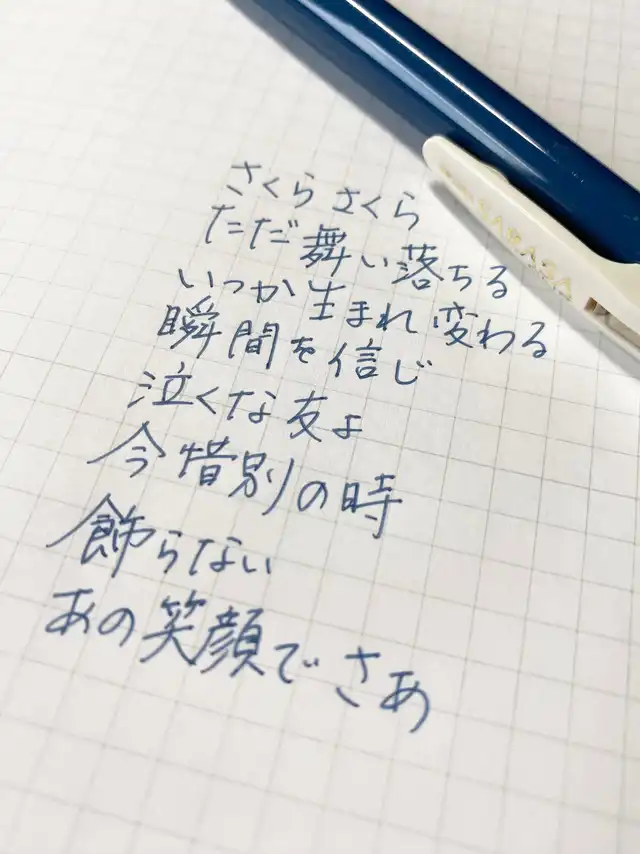 さくら さくら
ただ舞い落ちる
いつか生まれ変わる
瞬間を信じ
泣くな友よ
今惜別の時
飾らない
あの笑顔で さあ
SARASA